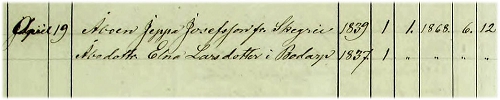 April 19 Åboen Jeppa Josefsson fr Skegrie 1839 1 1. 1868. 6. 12
Åbodottr Elna Larsdotter i Bodarp 1837 1 " " "